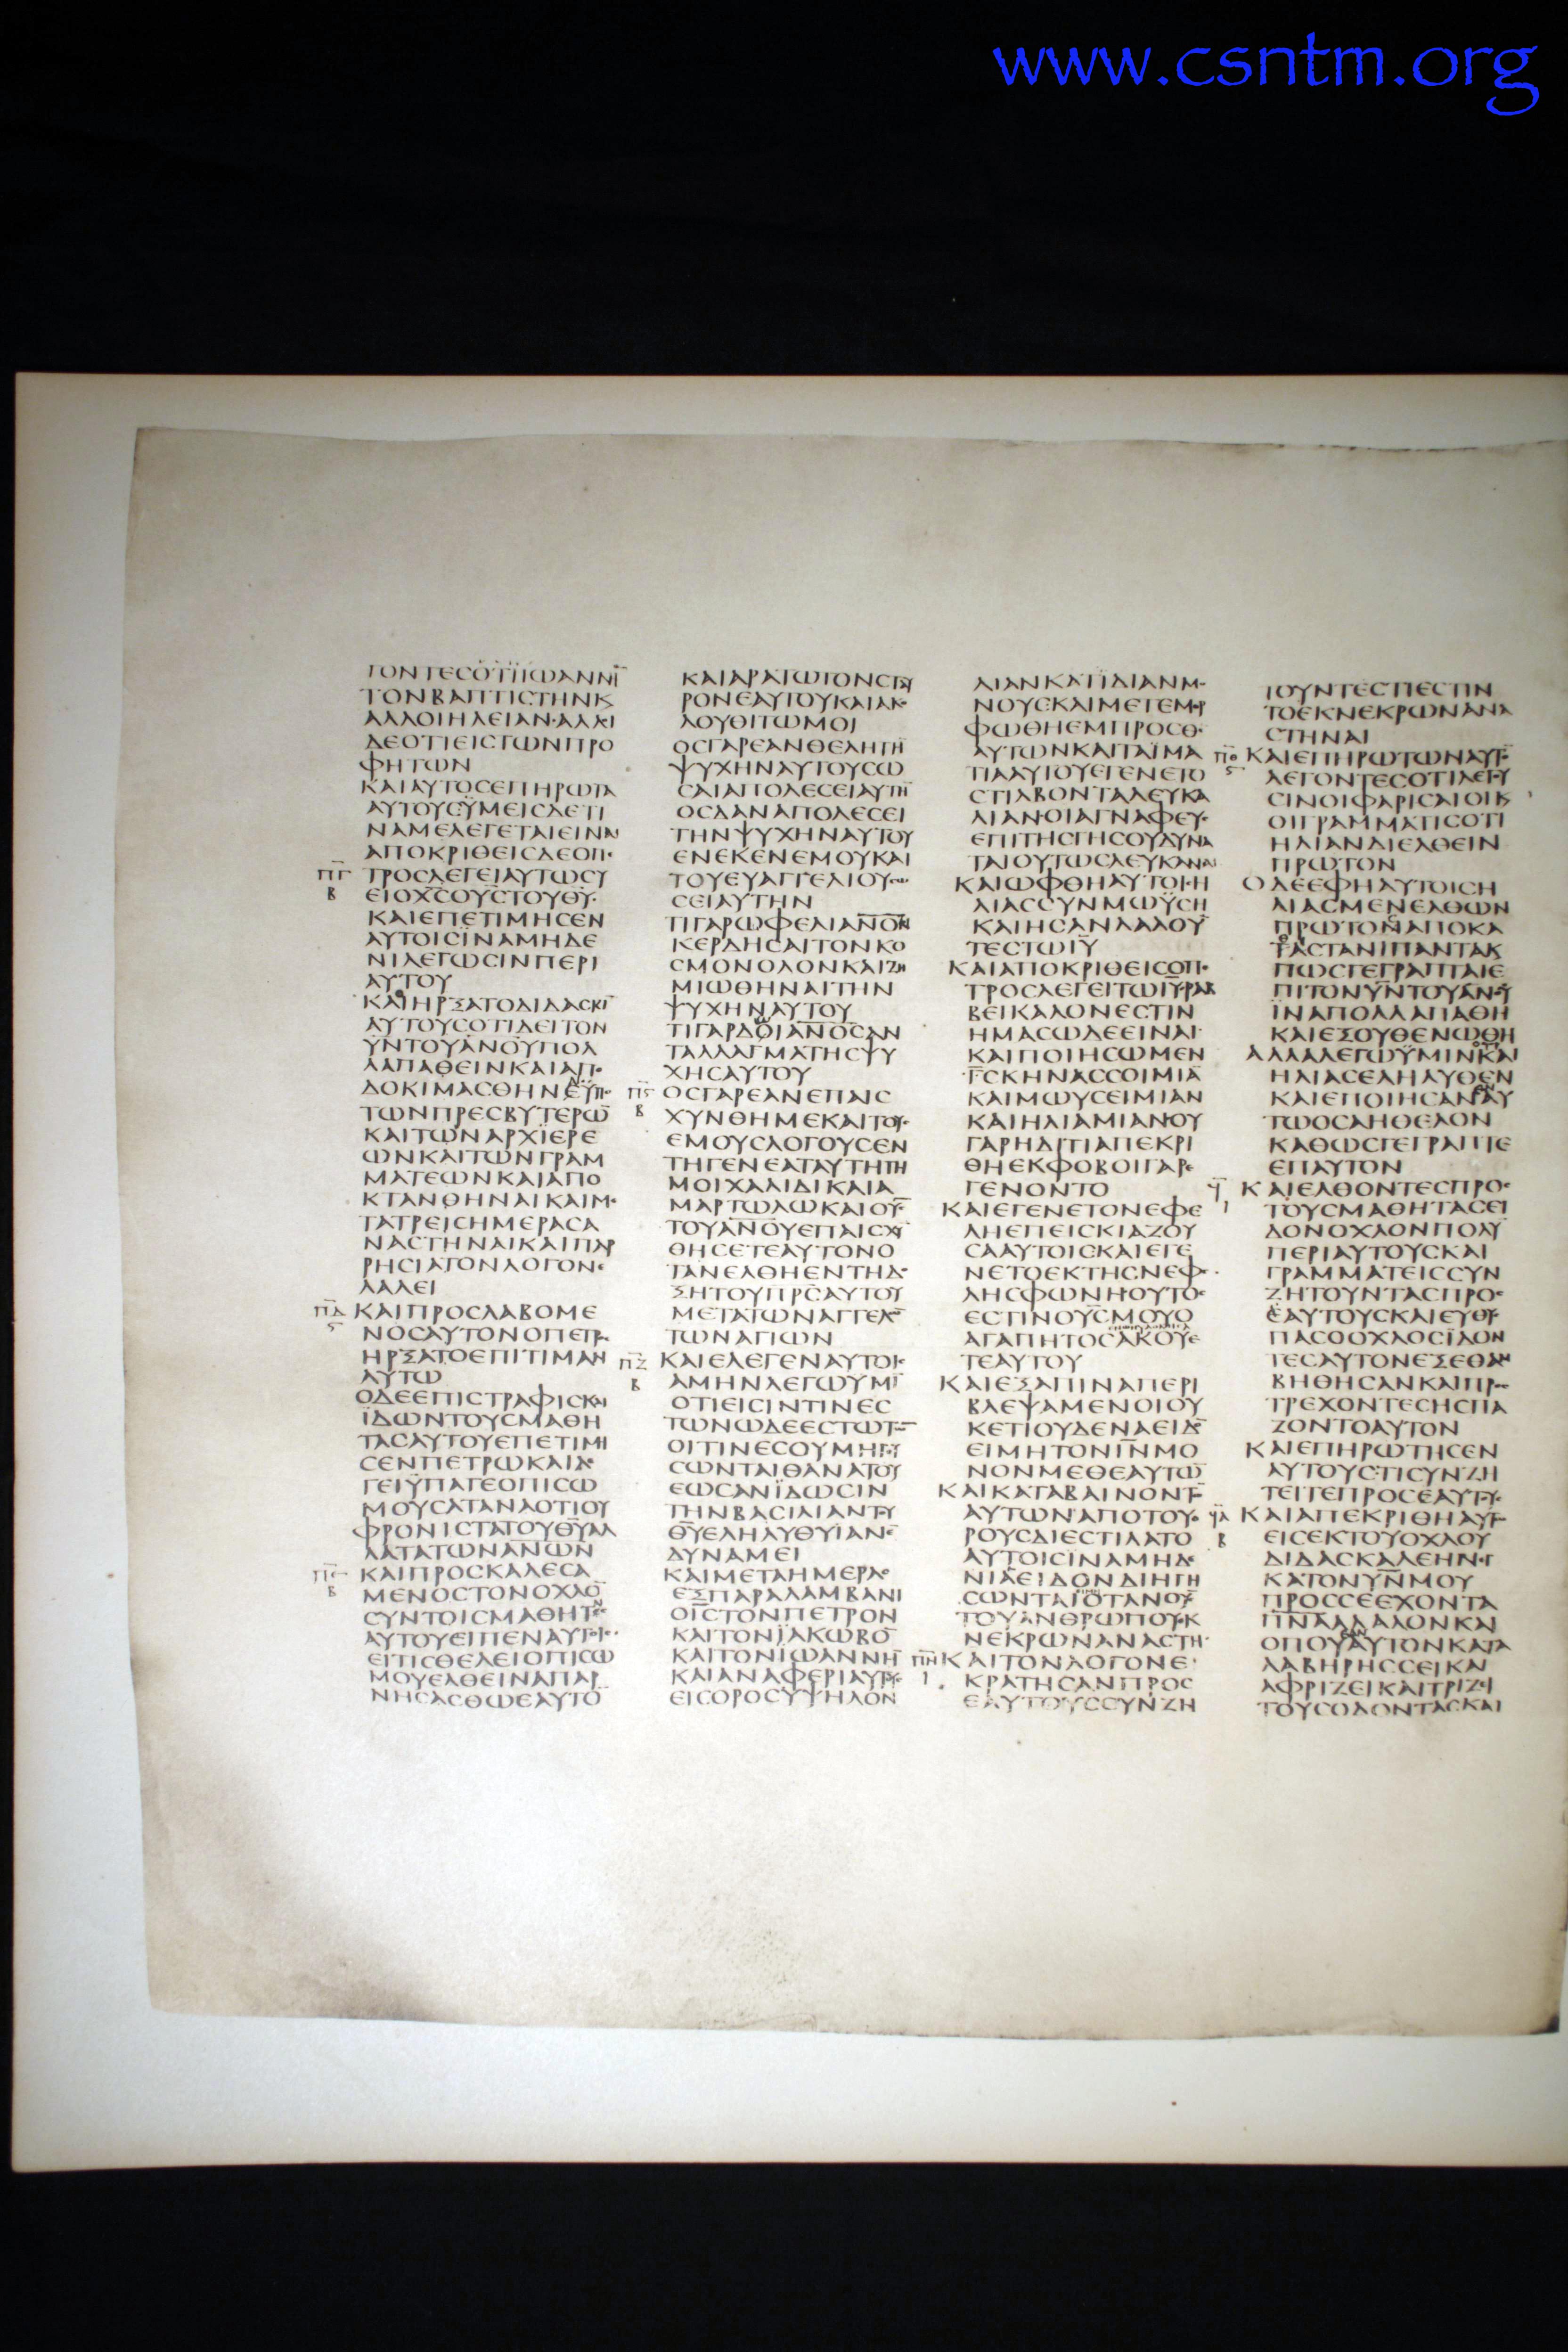 www.csntm.org
ΤΟΝΤΕϹΟΤΙΙΩΑΝΝΗ̅
ΤΟΝΒΑΠΤΙϹΤΗΝΚ
ΑΛΛΟΙΗΛΕΙΑΝ·ΑΛΛΟΙ
ΔΕΟΤΙΕΙϹΤΩΝΠΡΟ
ΦΗΤΩΝ
ΚΑΙΑΥΤΟϹΕΠΗΡΩΤΑ
ΑΥΤΟΥϹΫΜΕΙϹΔΕΤΙ
ΝΑΜΕΛΕΓΕΤΑΙΕΙΝΑΙ
ΑΠΟΚΡΙΘΕΙϹΔΕΟΠΕ
Π̅Γ̅ ΤΡΟϹΛΕΓΕΙΑΥΤΩϹΥ
Β ΕΙΟΧ̅Ϲ̅ΟΥ̅Ϲ̅ΤΟΥΘ̅Υ̅·
ΚΑΙΕΠΕΤΙΜΗϹΕΝ
ΑΥΤΟΙϹΪΝΑΜΗΔΕ
ΝΙΛΕΓΩϹΙΝΠΕΡΙ
ΑΥΤΟΥ
ΚΑΙΗΡΞΑΤΟΔΙΔΑϹΚΙ̅
ΑΥΤΟΥϹΟΤΙΔΕΙΤΟΝ
Υ̅Ν̅ΤΟΥΑ̅Ν̅Ο̅Υ̅ΠΟΛ
ΛΑΠΑΘΕΙΝΚΑΙΑΠΟ
ΔΟΚΙΜΑϹΘΗΝΕΫΠΟ
ΤΩΝΠΡΕϹΒΥΤΕΡΩ̅
ΚΑΙΤΩΝΑΡΧΪΕΡΕ
ΩΝΚΑΙΤΩΝΓΡΑΜ
ΜΑΤΕΩΝΚΑΙΑΠΟ
ΚΤΑΝΘΗΝΑΙΚΑΙΜΕ
ΤΑΤΡΕΙϹΗΜΕΡΑϹΑ
ΝΑϹΤΗΝΑΙΚΑΙΠΑΡ
ΡΗϹΙΑΤΟΝΛΟΓΟΝΕ
ΛΑΛΕΙ
Π̅Δ̅ ΚΑΙΠΡΟϹΛΑΒΟΜΕ
Ϛ ΝΟϹΑΥΤΟΝΟΠΕΤΡΟϹ
ΗΡΞΑΤΟΕΠΙΤΙΜΑΝ
ΑΥΤΩ
ΟΔΕΕΠΙϹΤΡΑΦΙϹΚΑΙ
ΪΔΩΝΤΟΥϹΜΑΘΗ
ΤΑϹΑΥΤΟΥΕΠΕΤΙΜΗ
ϹΕΝΠΕΤΡΩΚΑΙΛΕ
ΓΕΙΫΠΑΓΕΟΠΙϹΩ
ΜΟΥϹΑΤΑΝΑΟΤΙΟΥ
ΦΡΟΝΙϹΤΑΤΟΥΘ̅Υ̅ΑΛ
ΛΑΤΑΤΩΝΑΝΩΝ
Π̅Ε̅ ΚΑΙΠΡΟϹΚΑΛΕϹΑ
Β ΜΕΝΟϹΤΟΝΟΧΛΟ̅
ϹΥΝΤΟΙϹΜΑΘΗΤΑΙϹ
ΑΥΤΟΥΕΙΠΕΝΑΥΤΟΙϹ
ΕΙΤΙϹΘΕΛΕΙΟΠΙϹΩ
ΜΟΥΕΛΘΕΙΝΑΠΑΡ
ΝΗϹΑϹΘΩΕΑΥΤΟ̅
ΚΑΙΑΡΑΤΩΤΟΝϹΤΑΥ
ΡΟΝΕΑΥΤΟΥΚΑΙΑΚΟ
ΛΟΥΘΙΤΩΜΟΙ
ΟϹΓΑΡΕΑΝΘΕΛΗΤΗ̅
ΨΥΧΗΝΑΥΤΟΥϹΩ
ϹΑΙΑΠΟΛΕϹΕΙΑΥΤΗ̅
ΟϹΔΑΝΑΠΟΛΕϹΕΙ
ΤΗΝΨΥΧΗΝΑΥΤΟΥ
ΕΝΕΚΕΝΕΜΟΥΚΑΙ
ΤΟΥΕΥΑΓΓΕΛΙΟΥϹΩ
ϹΕΙΑΥΤΗΝ
ΤΙΓΑΡΩΦΕΛΙΑ̅Ν̅Ο̅Ν̅
ΚΕΡΔΗϹΑΙΤΟΝΚΟ
ϹΜΟΝΟΛΟΝΚΑΙΖΗ
ΜΙΩΘΗΝΑΙΤΗΝ
ΨΥΧΗΝΑΥΤΟΥ
ΤΙΓΑΡΔΟΙΑ̅Ν̅Ο̅Ϲ̅ΑΝ
ΤΑΛΛΑΓΜΑΤΗϹΨΥ
ΧΗϹΑΥΤΟΥ
Π̅Ϛ̅ ΟϹΓΑΡΕΑΝΕΠΑΙϹ
Β ΧΥΝΘΗΜΕΚΑΙΤΟΥϹ
ΕΜΟΥϹΛΟΓΟΥϹΕΝ
ΤΗΓΕΝΕΑΤΑΥΤΗΤΗ
ΜΟΙΧΑΛΙΔΙΚΑΙΑ
ΜΑΡΤΩΛΩΚΑΙΟΥ̅Ϲ̅
ΤΟΥΑ̅Ν̅Ο̅Υ̅ΕΠΑΙϹΧΥ
ΘΗϹΕΤΕΑΥΤΟΝΟ
ΤΑΝΕΛΘΗΕΝΤΗΔΟ
ΞΗΤΟΥΠ̅Ρ̅Ϲ̅ΑΥΤΟΥ
ΜΕΤΑΤΩΝΑΓΓΕΛΩ̅
ΤΩΝΑΓΙΩΝ
Π̅Ζ̅ ΚΑΙΕΛΕΓΕΝΑΥΤΟΙϹ
Β ΑΜΗΝΛΕΓΩΥΜΙ̅
ΟΤΙΕΙϹΙΝΤΙΝΕϹ
ΤΩΝΩΔΕΕϹΤΩΤΩ̅
ΟΙΤΙΝΕϹΟΥΜΗΓΕΥ
ϹΩΝΤΑΙΘΑΝΑΤΟΥ
ΕΩϹΑΝΪΔΩϹΙΝ
ΤΗΝΒΑϹΙΛΙΑΝΤΟΥ
Θ̅Υ̅ΕΛΗΛΥΘΥΪΑΝΕ̅
ΔΥΝΑΜΕΙ
ΚΑΙΜΕΤΑΗΜΕΡΑϹ
ΕΞΠΑΡΑΛΑΜΒΑΝΙ
ΟΙ̅Ϲ̅ΤΟΝΠΕΤΡΟΝ
ΚΑΙΤΟΝΪΑΚΩΒΟ̅
ΚΑΙΤΟΝΪΩΑΝΝΗ̅
ΚΑΙΑΝΑΦΕΡΙΑΥΤΟΥϹ
ΕΙϹΟΡΟϹΥΨΗΛΟΝ
ΛΙΑΝΚΑΤΙΔΙΑΝΜΟ
ΝΟΥϹΚΑΙΜΕΤΕΜΟΡ
ΦΩΘΗΕΜΠΡΟϹΘΕ
ΑΥΤΩΝΚΑΙΤΑΪΜΑ
ΤΙΑΑΥΤΟΥΕΓΕΝΕΤΟ
ϹΤΙΛΒΟΝΤΑΛΕΥΚΑ
ΛΙΑΝ·ΟΙΑΓΝΑΦΕΥϹ
ΕΠΙΤΗϹΓΗϹΟΥΔΥΝΑ
ΤΑΙΟΥΤΩϹΛΕΥΚΑΝΑΙ
ΚΑΙΩΦΘΗΑΥΤΟΙϹΗ
ΛΙΑϹϹΥΝΜΩΫϹΗ
ΚΑΙΗϹΑΝΛΑΛΟΥ̅
ΤΕϹΤΩΙ̅Υ̅
ΚΑΙΑΠΟΚΡΙΘΕΙϹΟΠΕ
ΤΡΟϹΛΕΓΕΙΤΩΙ̅Υ̅·ΡΑΒ
ΒΕΙΚΑΛΟΝΕϹΤΙΝ
ΗΜΑϹΩΔΕΕΙΝΑΙ
ΚΑΙΠΟΙΗϹΩΜΕΝ
Γ̅ϹΚΗΝΑϹϹΟΙΜΙΑ̅
ΚΑΙΜΩΥϹΕΙΜΙΑΝ
ΚΑΙΗΛΙΑΜΙΑΝΟΥ
ΓΑΡΗΔΙΤΙΑΠΕΚΡΙ
ΘΗΕΚΦΟΒΟΙΓΑΡΕ
ΓΕΝΟΝΤΟ
ΚΑΙΕΓΕΝΕΤΟΝΕΦΕ
ΛΗΕΠΕΙϹΚΙΑΖΟΥ
ϹΑΑΥΤΟΙϹΚΑΙΕΓΕ
ΝΕΤΟΕΚΤΗϹΝΕΦΕ
ΛΗϹΦΩΝΗΟΥΤΟϹ
ΕϹΤΙΝΟΥ̅Ϲ̅ΜΟΥΟ
ΑΓΑΠΗΤΟϹΑΚΟΥΕ
ΤΕΑΥΤΟΥ
ΚΑΙΕΞΑΠΙΝΑΠΕΡΙ
ΒΛΕΨΑΜΕΝΟΙΟΥ
ΚΕΤΙΟΥΔΕΝΑΕΙΔΟ̅
ΕΙΜΗΤΟΝΙ̅Ν̅ΜΟ
ΝΟΝΜΕΘΕΑΥΤΩ̅
ΚΑΙΚΑΤΑΒΑΙΝΟΝΤΩ̅
ΑΥΤΩΝΑΠΟΤΟΥΟ
ΡΟΥϹΔΙΕϹΤΙΛΑΤΟ
ΑΥΤΟΙϹΙΝΑΜΗΔΕ
ΝΙΑΕΙΔΟΝΔΙΗΓΗ
ϹΩΝΤΑΙΟΤΑΝΟΥ̅Ϲ̅
ΤΟΥΑΝΘΡΩΠΟΥΕΚ
ΝΕΚΡΩΝΑΝΑϹΤΗ
Π̅Η̅ ΚΑΙΤΟΝΛΟΓΟΝΕ
Ι ΚΡΑΤΗϹΑΝΠΡΟϹ
ΕΑΥΤΟΥϹϹΥΝΖΗ
ΤΟΥΝΤΕϹΤΙΕϹΤΙΝ
ΤΟΕΚΝΕΚΡΩΝΑΝΑ
ϹΤΗΝΑΙ
Π̅Θ̅ ΚΑΙΕΠΗΡΩΤΩΝΑΥΤΟ̅
Ϛ ΛΕΓΟΝΤΕϹΟΤΙΛΕΓΟΥ
ϹΙΝΟΙΦΑΡΙϹΑΙΟΙΚ
ΟΙΓΡΑΜΜΑΤΙϹΟΤΙ
ΗΛΙΑΝΔΙΕΛΘΕΙΝ
ΠΡΩΤΟΝ
ΟΔΕΕΦΗΑΥΤΟΙϹΗ
ΛΙΑϹΜΕΝΕΛΘΩΝ
ΠΡΩΤΟΝΑΠΟΚΑ
ΤΑϹΤΑΝΙΠΑΝΤΑΚ
ΠΩϹΓΕΓΡΑΠΤΑΙΕ
ΠΙΤΟΝΥ̅Ν̅ΤΟΥΑ̅Ν̅Ο̅Υ̅
ΪΝΑΠΟΛΛΑΠΑΘΗ
ΚΑΙΕΞΟΥΘΕΝΩΘΗ
ΑΛΛΑΛΕΓΩΫΜΙΝΚΑΙ
ΗΛΙΑϹΕΛΗΛΥΘΕΝ
ΚΑΙΕΠΟΙΗϹΑΝΑΥ
ΤΩΟϹΑΗΘΕΛΟΝ
ΚΑΘΩϹΓΕΓΡΑΠΤΕ
ΕΠΑΥΤΟΝ
Ϟ̅ ΚΑΙΕΛΘΟΝΤΕϹΠΡΟϹ
Ι ΤΟΥϹΜΑΘΗΤΑϹΕΙ
ΔΟΝΟΧΛΟΝΠΟΛΥ̅
ΠΕΡΙΑΥΤΟΥϹΚΑΙ
ΓΡΑΜΜΑΤΕΙϹϹΥΝ
ΖΗΤΟΥΝΤΑϹΠΡΟϹ
ΕΑΥΤΟΥϹΚΑΙΕΥΘΥϹ
ΠΑϹΟΟΧΛΟϹΪΔΟΝ
ΤΕϹΑΥΤΟΝΕΞΕΘΑΜ
ΒΗΘΗϹΑΝΚΑΙΠΡΟϹ
ΤΡΕΧΟΝΤΕϹΗϹΠΑ
ΖΟΝΤΟΑΥΤΟΝ
ΚΑΙΕΠΗΡΩΤΗϹΕΝ
ΑΥΤΟΥϹΤΙϹΥΝΖΗ
ΤΕΙΤΕΠΡΟϹΕΑΥΤΟΥϹ
Ϟ̅Α̅ ΚΑΙΑΠΕΚΡΙΘΗΑΥΤΩ
Β ΕΙϹΕΚΤΟΥΟΧΛΟΥ
ΔΙΔΑϹΚΑΛΕΗΝΕΓ
ΚΑΤΟΝΥ̅Ν̅ΜΟΥ
ΠΡΟϹϹΕΕΧΟΝΤΑ
Π̅Ν̅Α̅ΑΛΑΛΟΝΚΑΙ
ΟΠΟΥΑΥΤΟΝΚΑΤΑ
ΛΑΒΗΡΗϹϹΕΙΚΑΙ
ΑΦΡΙΖΕΙΚΑΙΤΡΙΖΕΙ
ΤΟΥϹΟΔΟΝΤΑϹΚΑΙ